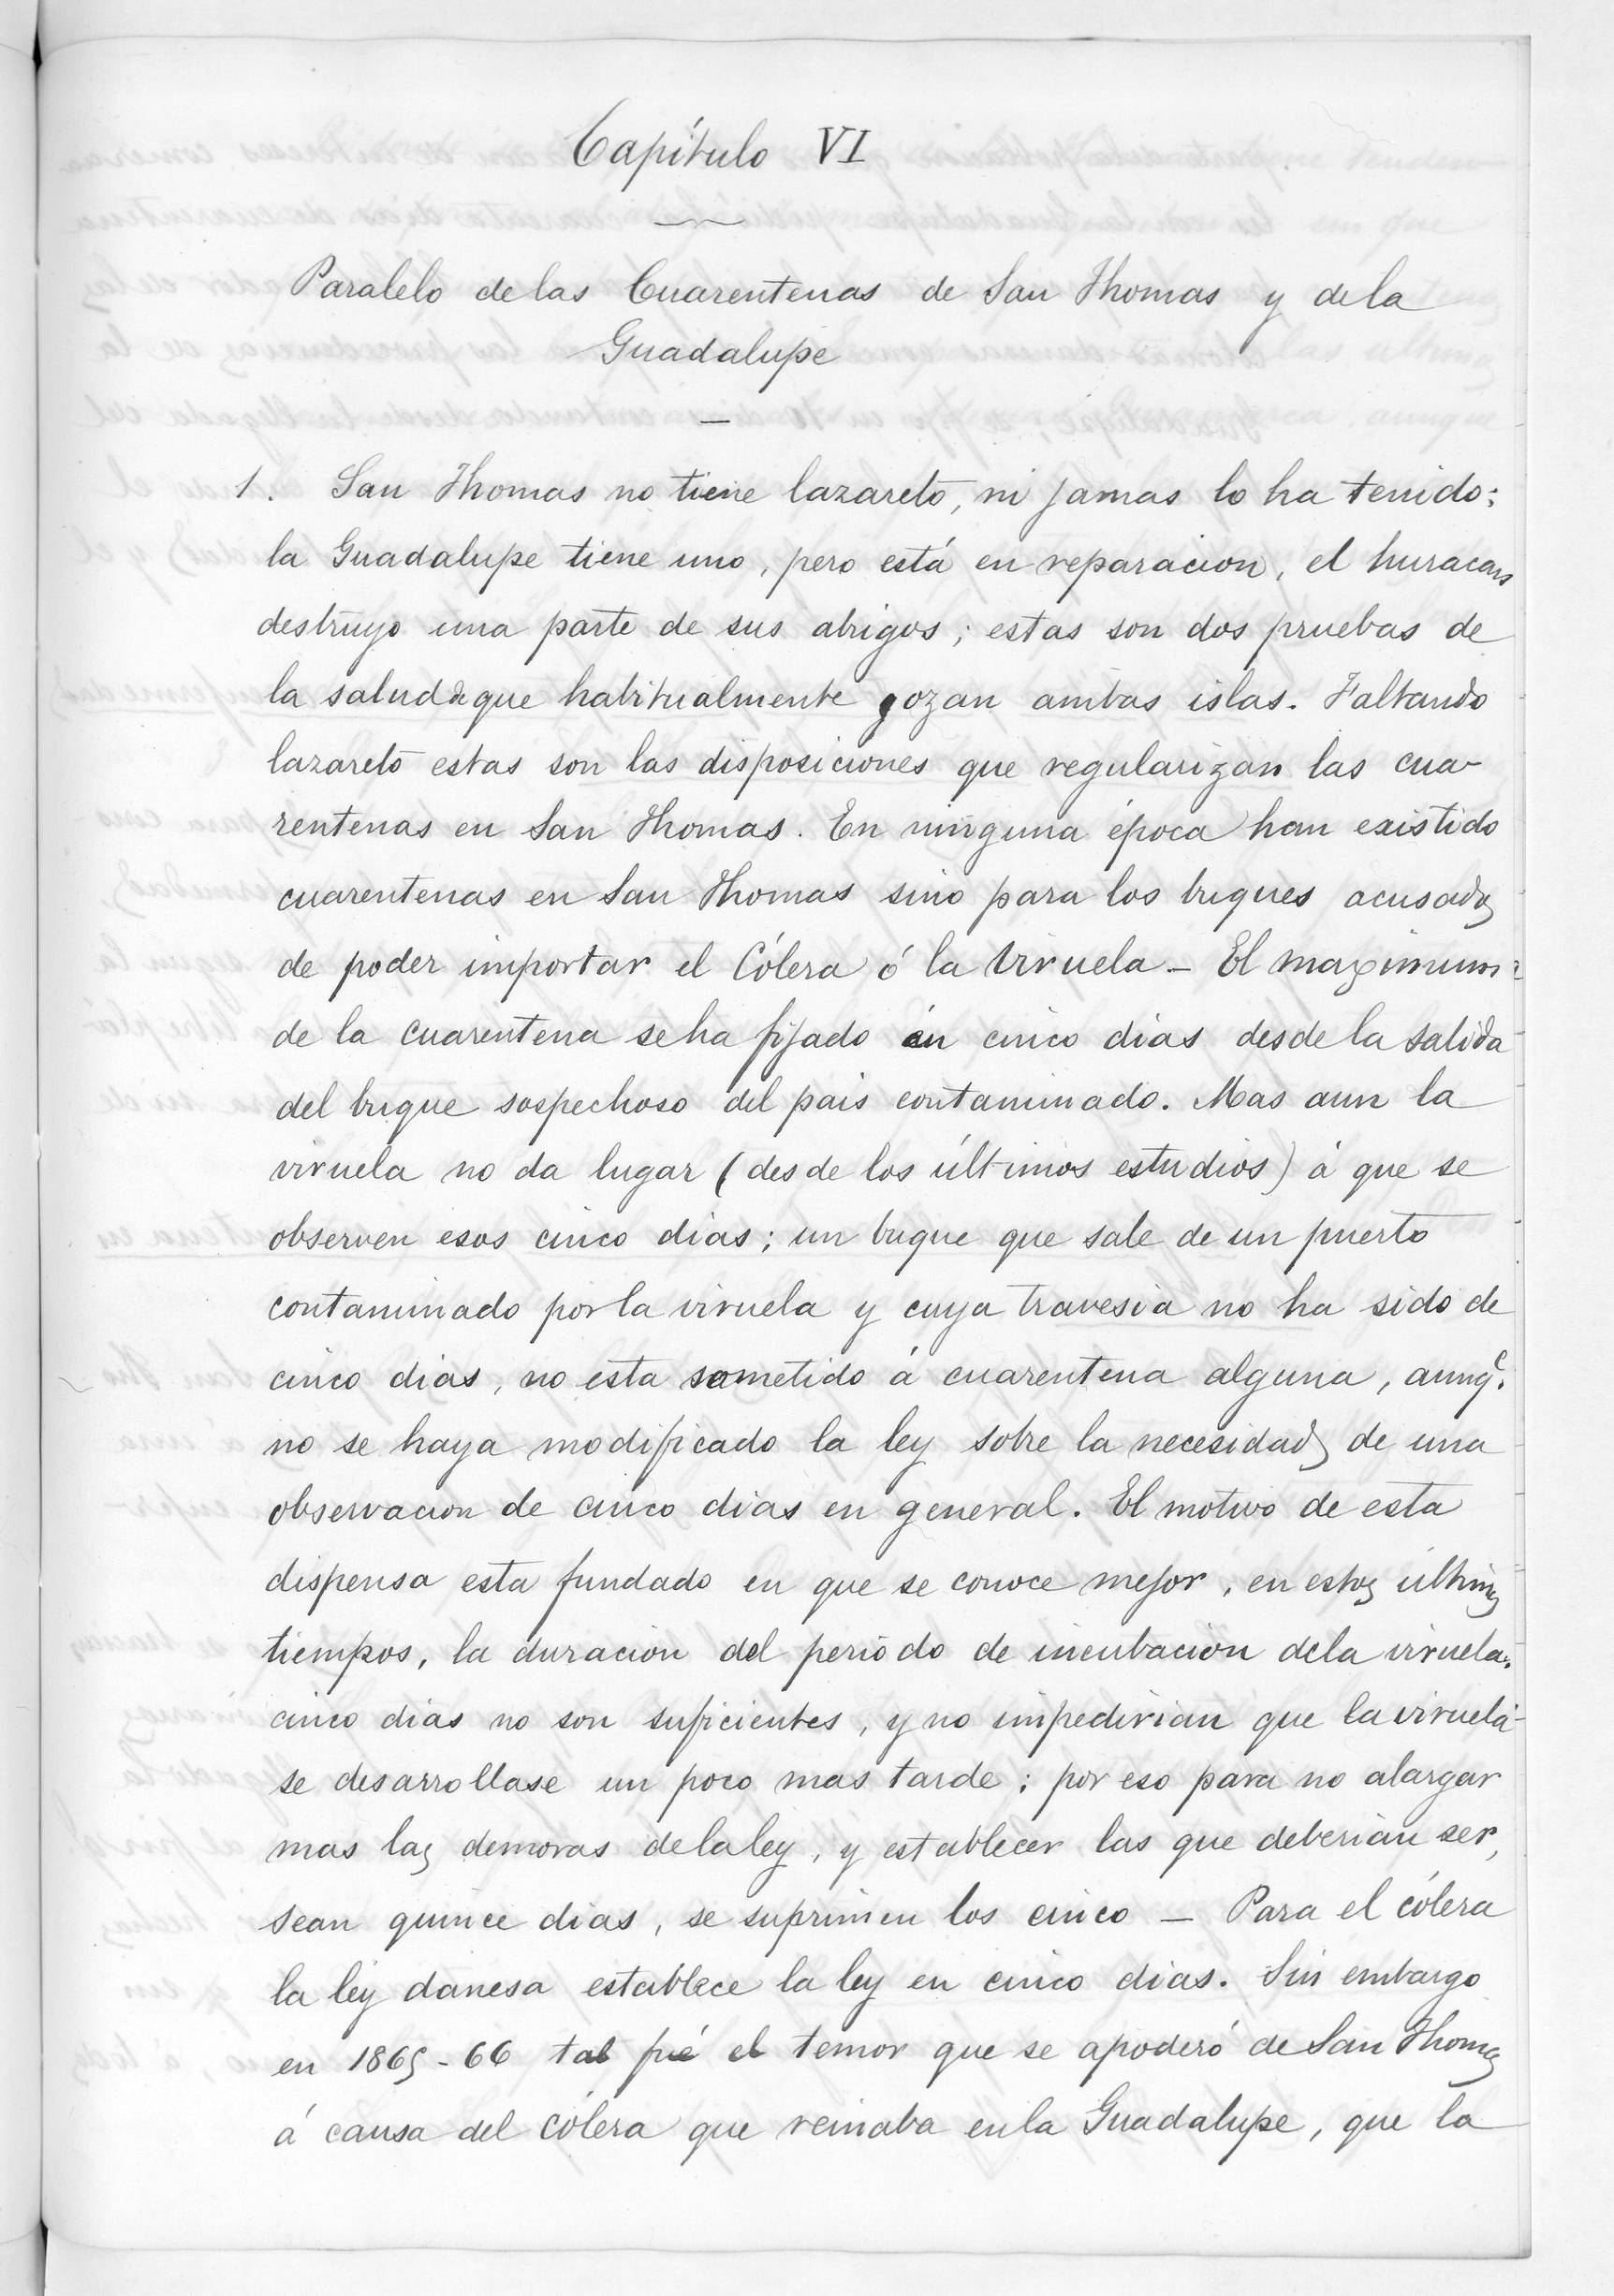 Capítulo VI
Paralelo de las Cuarentenas de San Thomas y de la
Guadalupe
1. San Thomas no tiene lazareto, ni jamas lo ha tenido;
la Guadalupe tiene uno, pero está en reparacion, el huracan
destruyo una parte de sus abrigos; estas son dos pruebas de
la salud de que habitualmente gozan ambas islas. Faltando
lazareto estas son las disposiciones que regularizan las cua-
rentenas en San Thomas. En ninguna época han existido
cuarentenas en San Thomas sino para los buques acusados
de poder importar el Cólera ó la viruela - El maximum
de la cuarentena se ha fijado en cinco dias desde la salida
del buque sospechoso del pais contaminado. Mas aun la
viruela no da lugar (desde los últimos estudios) á que se
observen esos cinco dias; un buque que sale de un puerto
contaminado por la viruela y cuya travesia no ha sido de
cinco dias, no esta sometido á cuarentena alguna, aunqe.
no se haya modificado la ley sobre la necesidad de una
observacion de cinco dias en general. El motivo de esta
dispensa esta fundado en que se conoce mejor, en estos últimos
tiempos, la duracion del periodo de incubacion de la viruela.
cinco dias no son suficientes, y no impedirian que la viruela
se desarrollase un poco mas tarde; por eso para no alargar
mas las demoras de la ley, y establecer las que deberian ser,
sean quince dias, se suprimen los cinco - Para el cólera
la ley danesa establece la ley en cinco dias. Sin embargo
en 1865-66 tal fué el temor que se apoderó de San Thomas
á causa del cólera que reinaba en la Guadalupe, que la